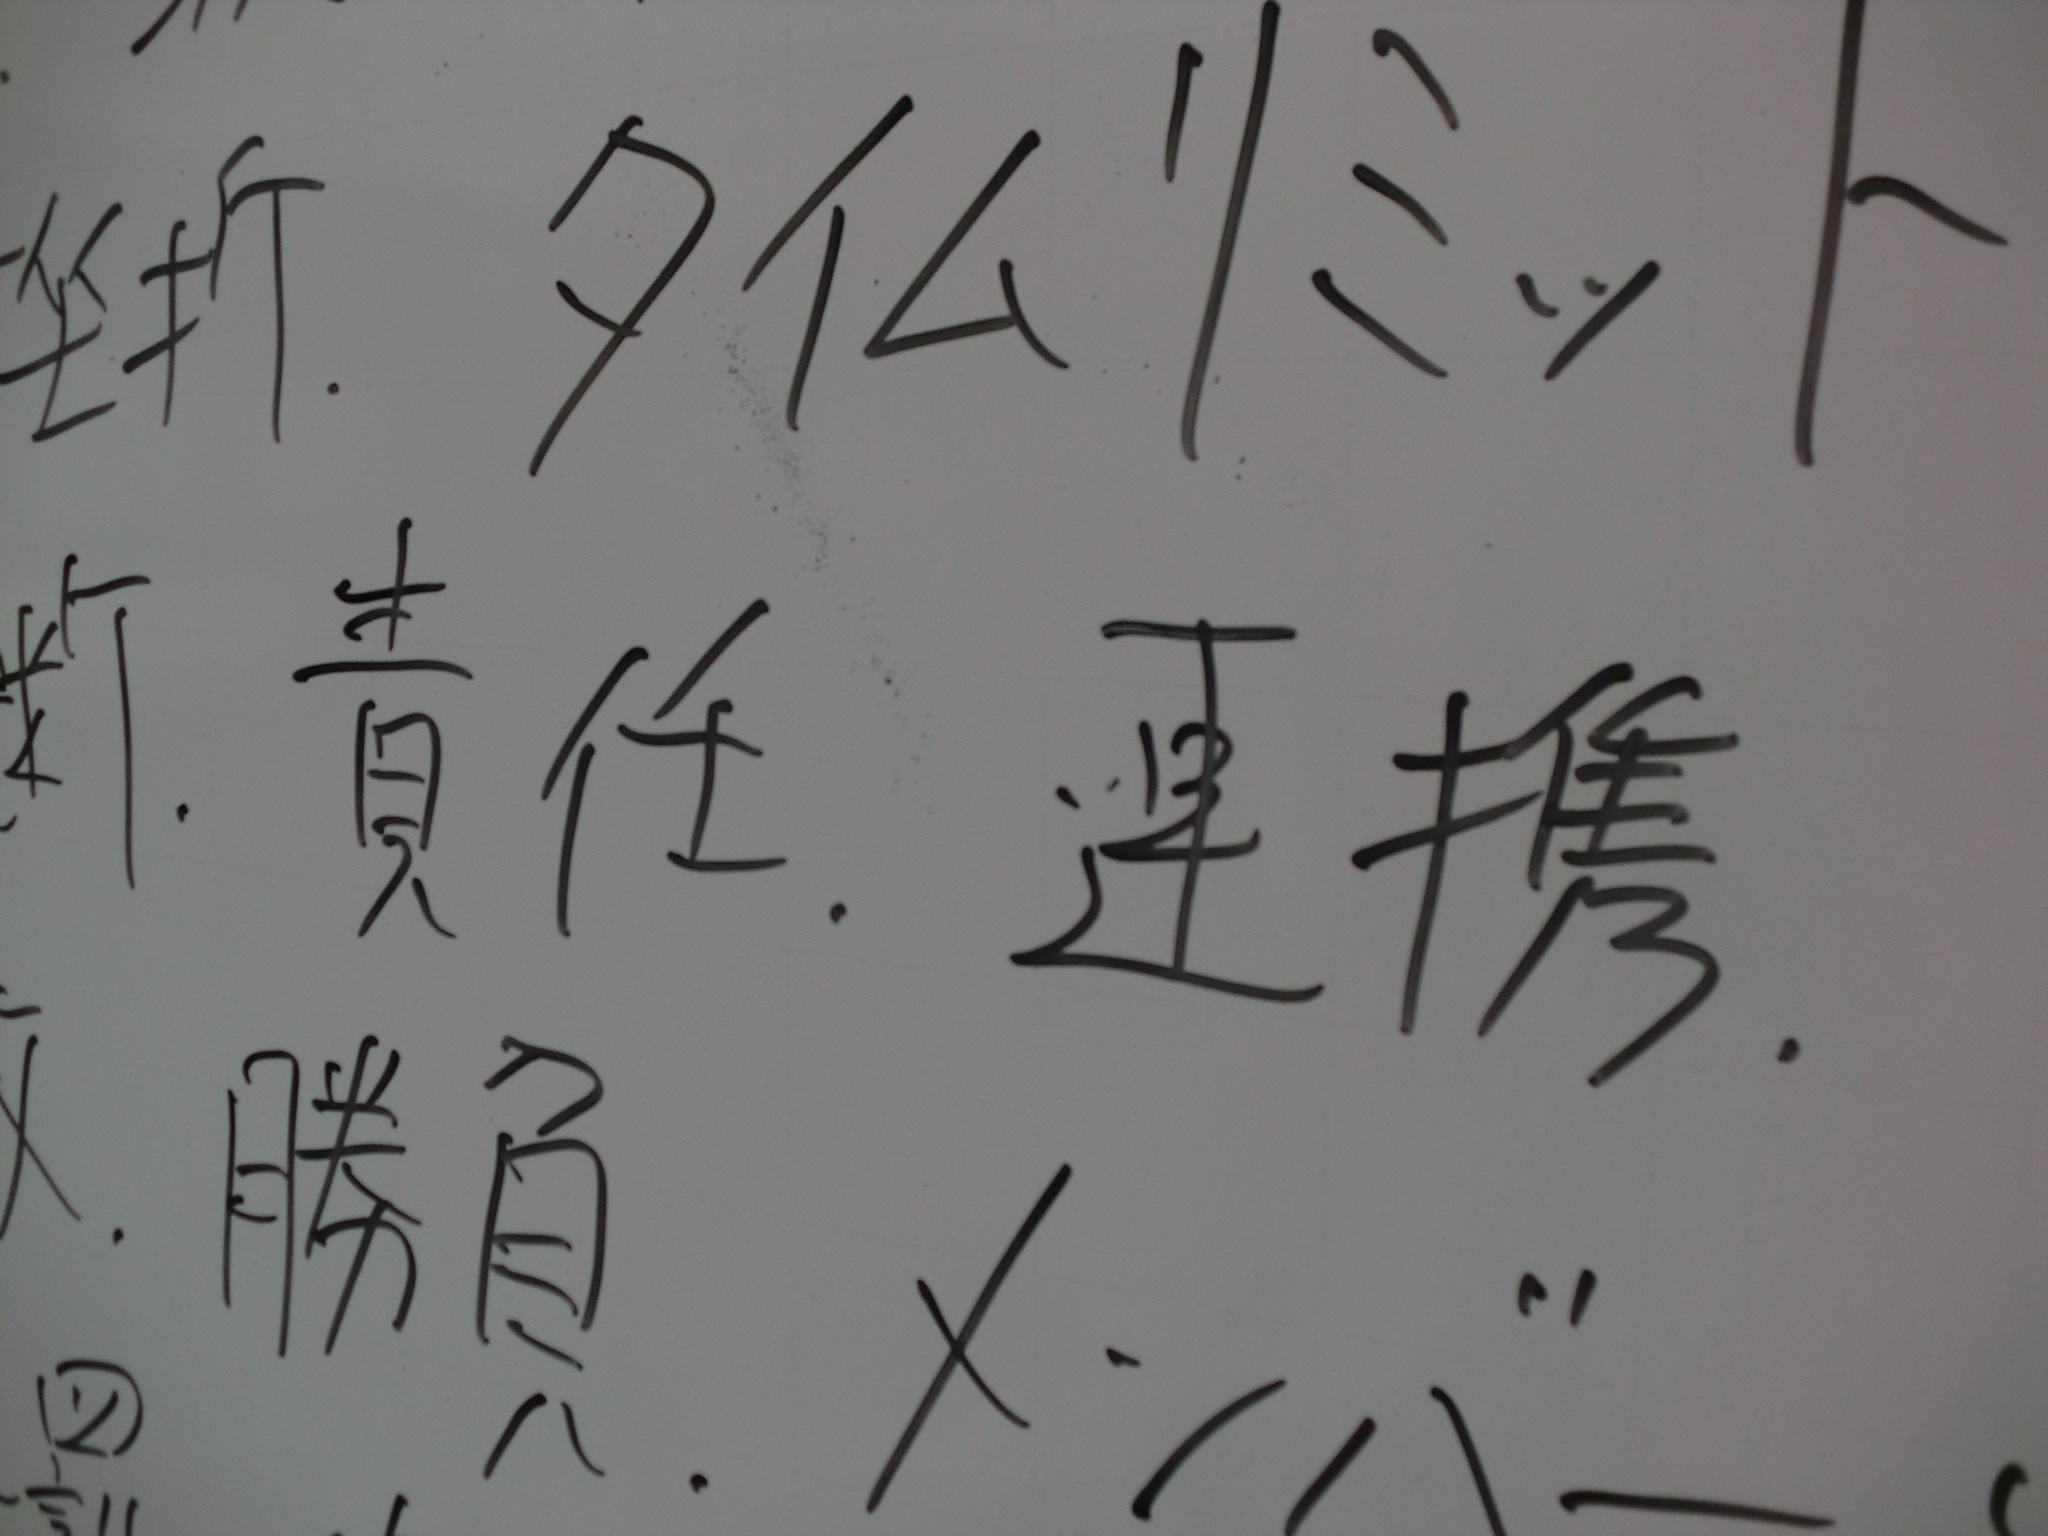 挫折. タイムリミット
折. 責任. 連携.
. 勝負. メンバー